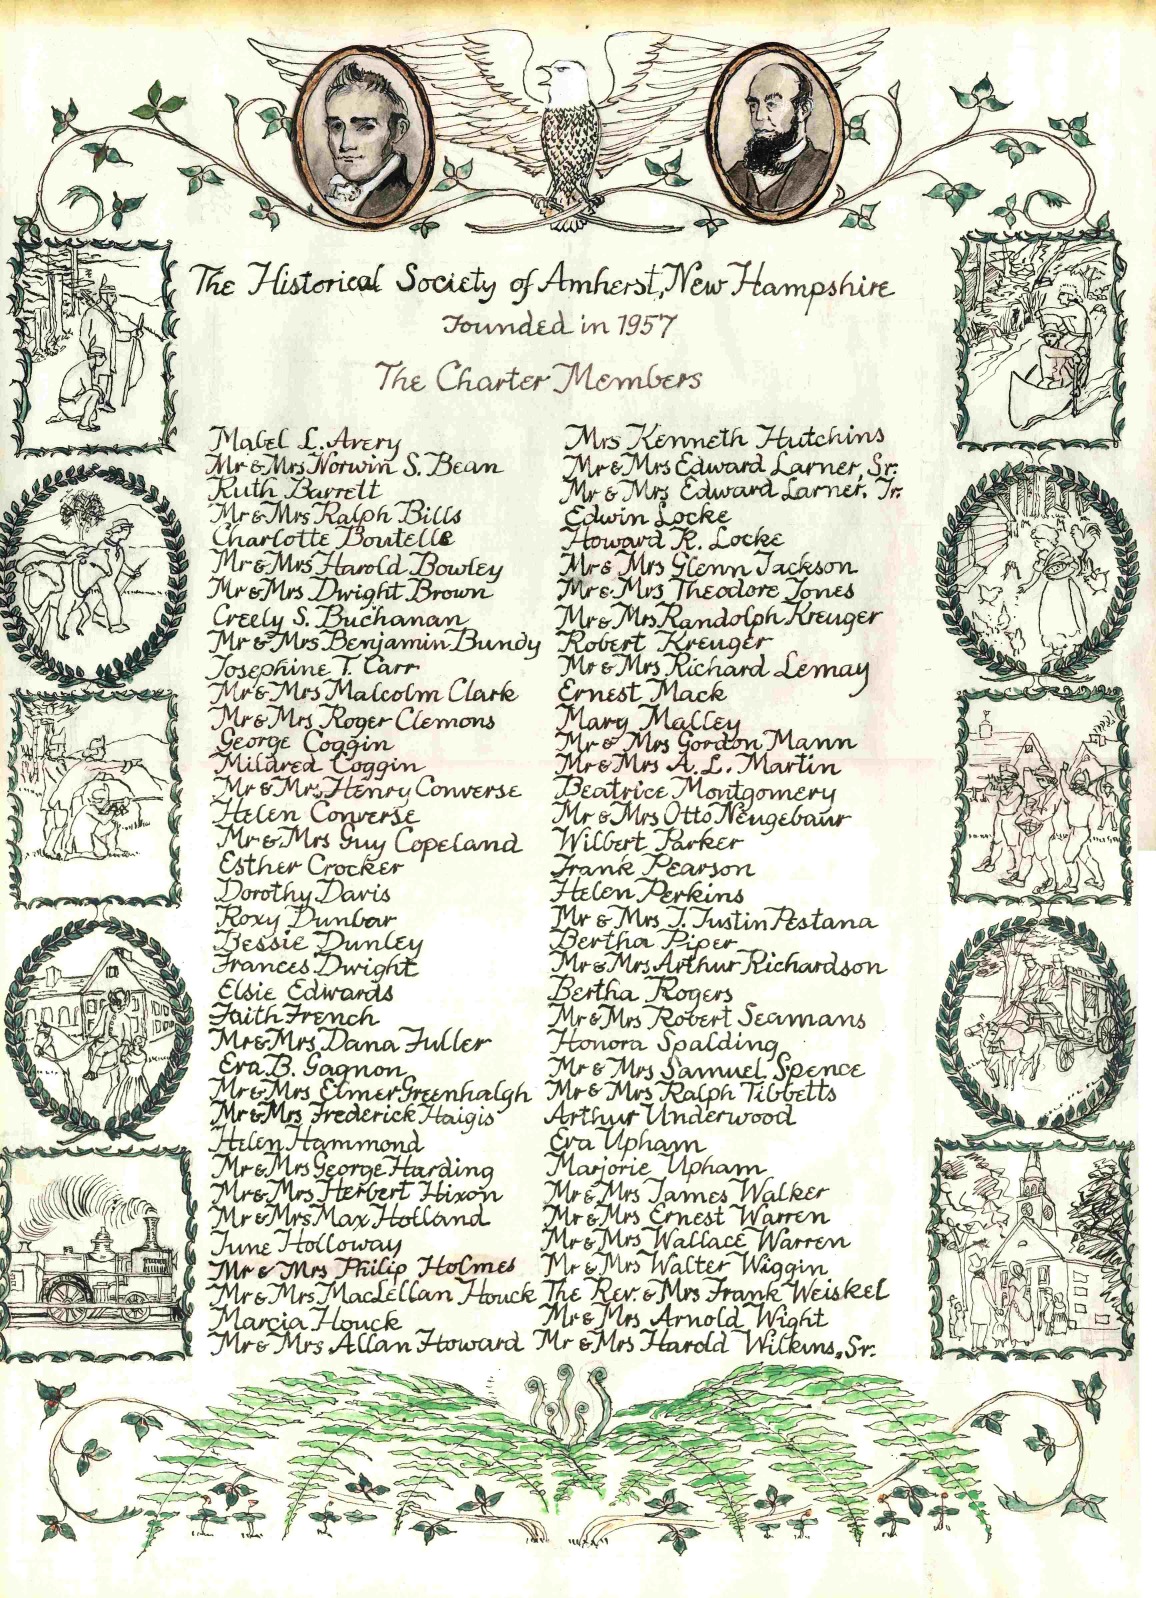 The Historical Society of Amherst, New Hampshire
Founded in 1957
The Charter Members
Mabel L. Avery
Mr & Mrs Norwin S. Bean
Ruth Barrett
Mr & Mrs Ralph Bills
Charlotte Boutelle
Mr & Mrs Harold Bowley
Mr & Mrs Dwight Brown
Creely S. Buchanan
Mr & Mrs Benjamin Bundy
Josephine T. Carr
Mr & Mrs Malcolm Clark
Mr & Mrs Roger Clemons
George Coggin
Mildred Coggin
Mr & Mrs Henry Converse
Helen Converse
Mr & Mrs Guy Copeland
Esther Crocker
Dorothy Davis
Roxy Dunbar
Bessie Dunley
Frances Dwight
Elsie Edwards
Faith French
Mr & Mrs Dana Fuller
Eva B. Gagnon
Mr & Mrs Elmer Greenhalgh
Mr & Mrs Frederick Haigis
Helen Hammond
Mr & Mrs George Harding
Mr & Mrs Herbert Hixon
Mr & Mrs Max Holland
June Holloway
Mr & Mrs Philip Holmes
Mr & Mrs MacLellan Houck
Marcia Houck
Mr & Mrs Allan Howard
Mrs Kenneth Hutchins
Mr & Mrs Edward Larner, Sr.
Mr & Mrs Edward Larner, Jr.
Edwin Locke
Howard R. Locke
Mr & Mrs Glenn Jackson
Mr & Mrs Theodore Jones
Mr & Mrs Randolph Kreuger
Robert Kreuger
Mr & Mrs Richard Lemay
Ernest Mack
Mary Malley
Mr & Mrs Gordon Mann
Mr & Mrs A. L. Martin
Beatrice Montgomery
Mr & Mrs Otto Neugebaur
Wilbert Parker
Frank Pearson
Helen Perkins
Mr & Mrs J. Justin Pestana
Bertha Piper
Mr & Mrs Arthur Richardson
Bertha Rogers
Mr & Mrs Robert Seamans
Honora Spalding
Mr & Mrs Samuel Spence
Mr & Mrs Ralph Tibbetts
Arthur Underwood
Eva Upham
Marjorie Upham
Mr & Mrs James Walker
Mr & Mrs Ernest Warren
Mr & Mrs Wallace Warren
Mr & Mrs Walter Wiggin
The Rev. & Mrs Frank Weiskel
Mr & Mrs Arnold Wight
Mr & Mrs Harold Wilkins, Sr.